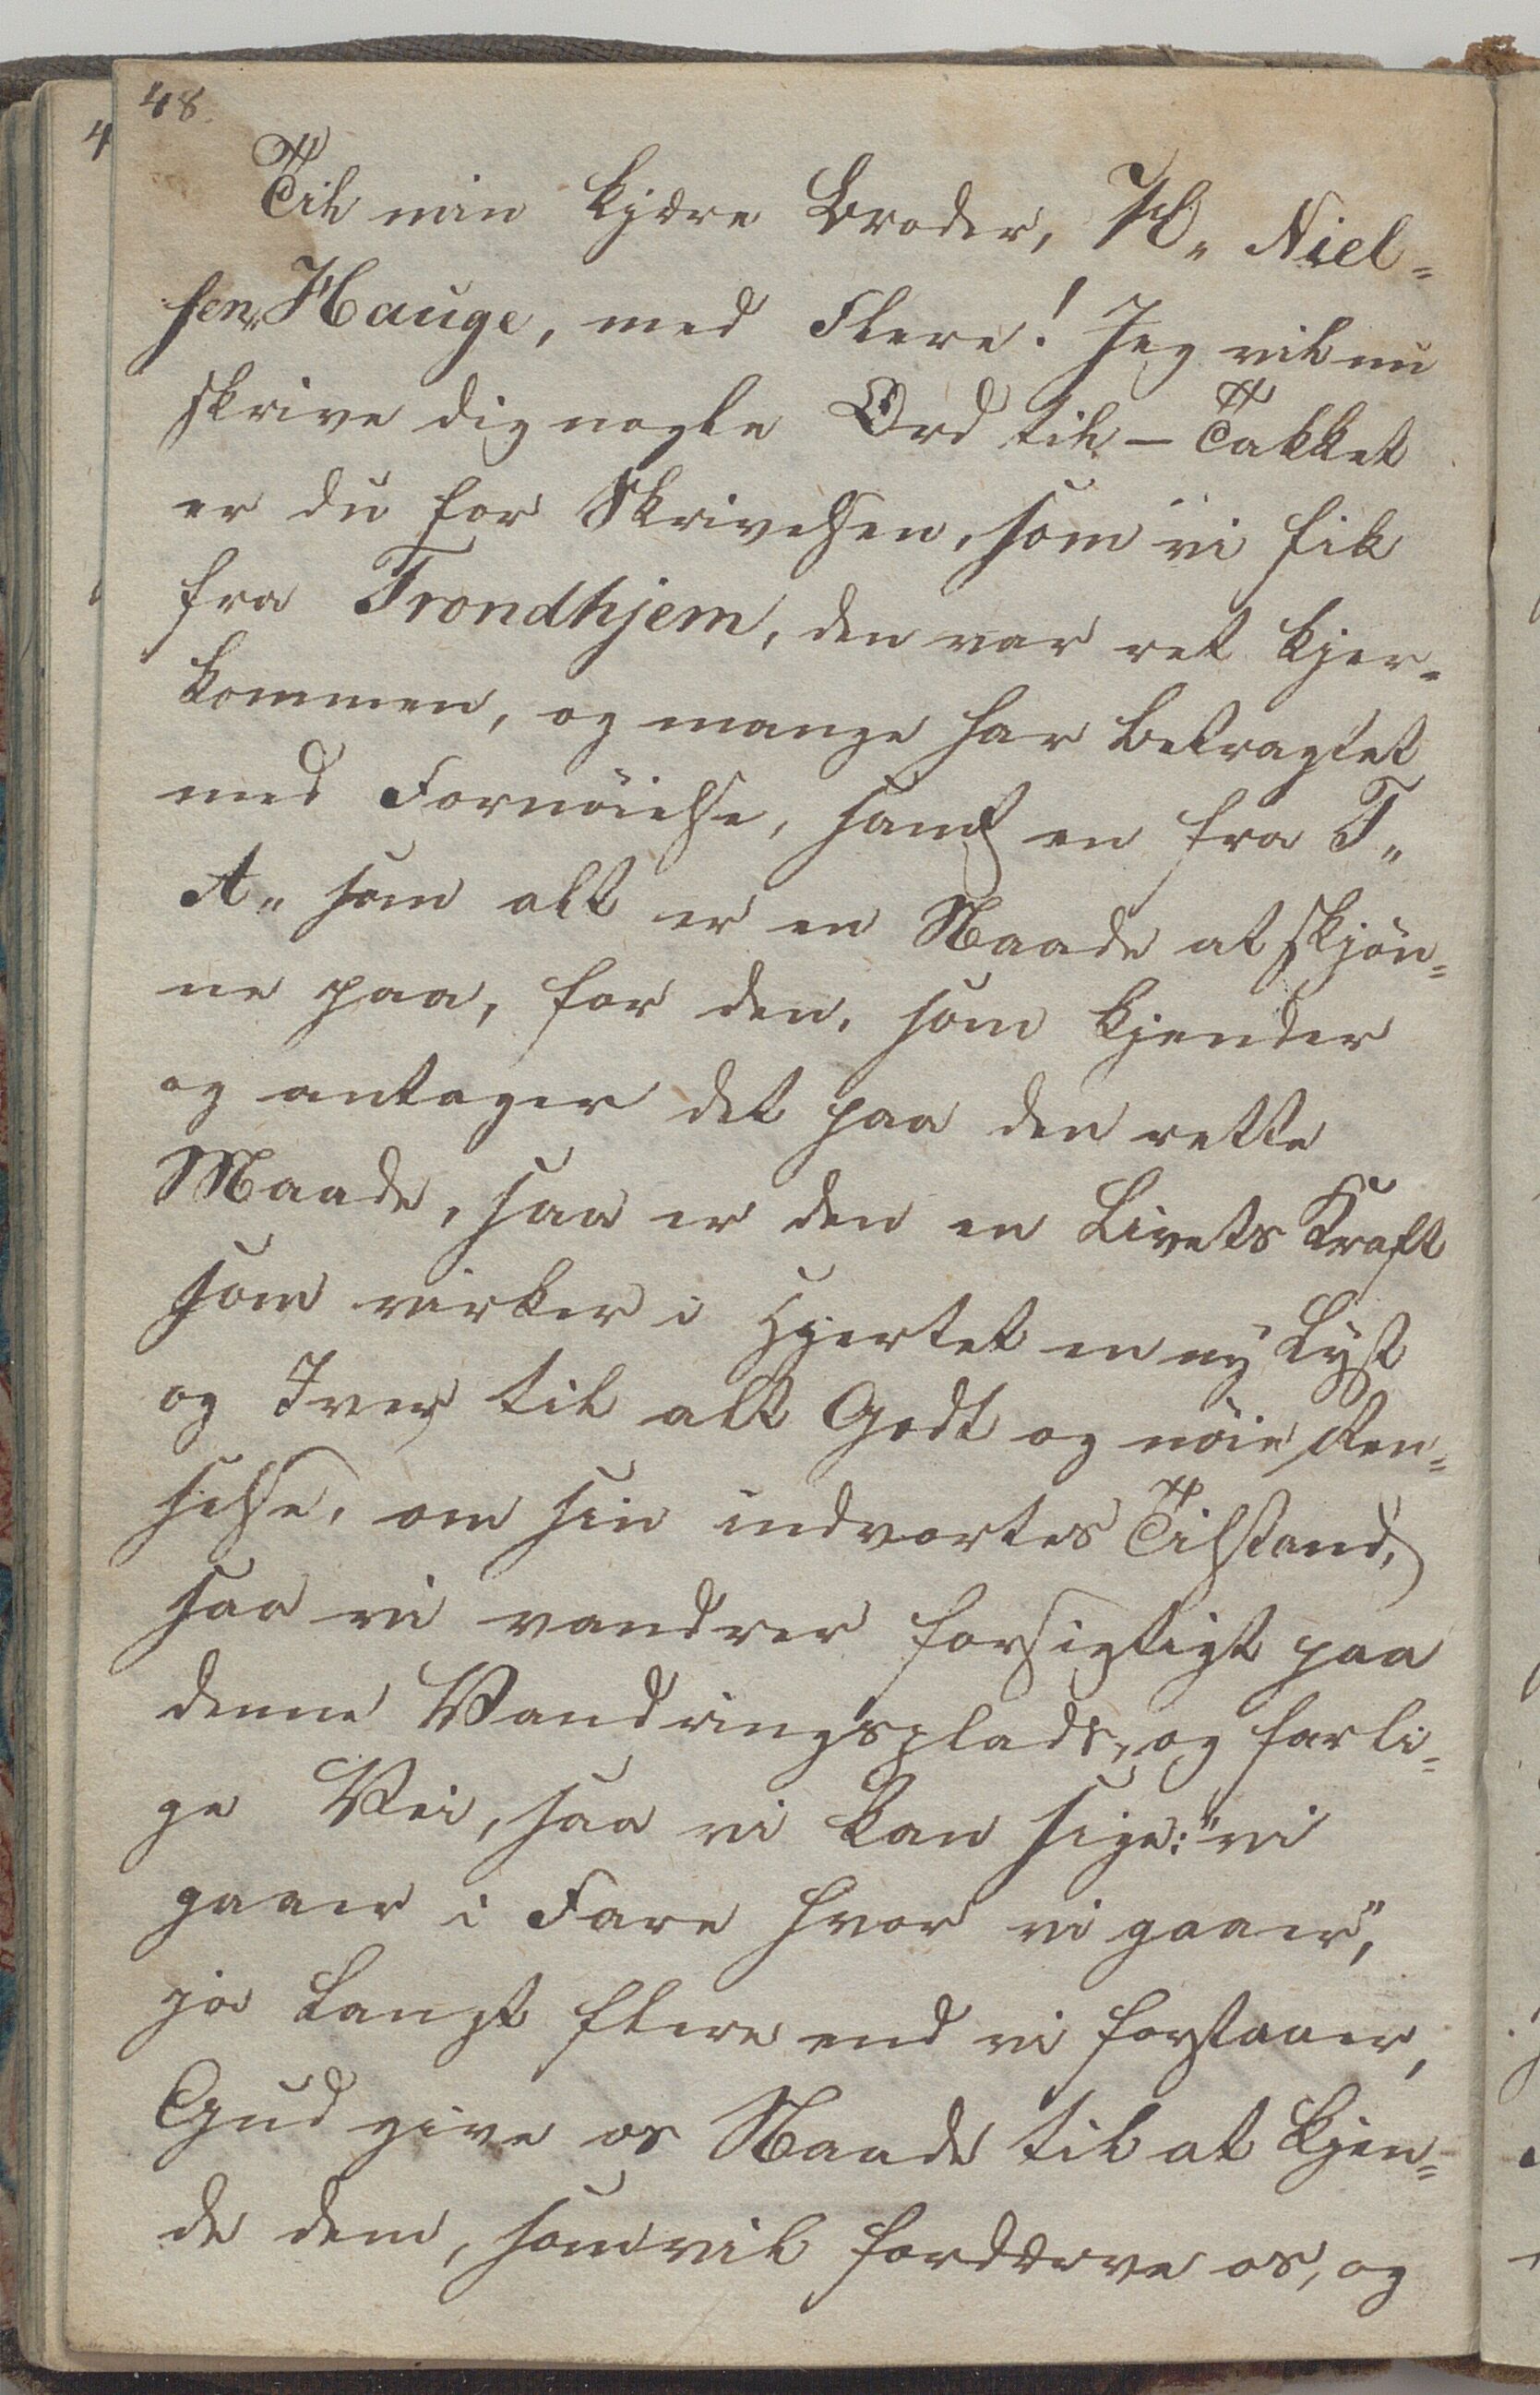 48.
Til min kjære Broder, H„ Niel-
sen Hauge, med Flere! Jeg vil nu
skrive dig nogle Ord til – Takket
er du for Skrivelsen, som vi fik
fra Trondhjem, den var ret kjer-
kommen, og mange har betragtet
med Fornöielse, samt en fra T„
A„ som alt er en Naade at skjön-
ne paa, for den, som kjender
og antager det paa den rette
Maade, saa er den en Livets Kraft
som virker i Hjertet en ny Lyst
og Iver til alt Godt og nöie Ran-
selse, om sin indvortes Tilstand,
saa vi vandrer forsigtigt paa
denne Vandringsplads, og farli-
ge Vei, saa vi kan sige: "vi
gaaer i Fare hvor vi gaaer",
ja langt flere end vi forstaaer,
Gud give os Naade til at kjen-
de dem, som vil fordærve os, og